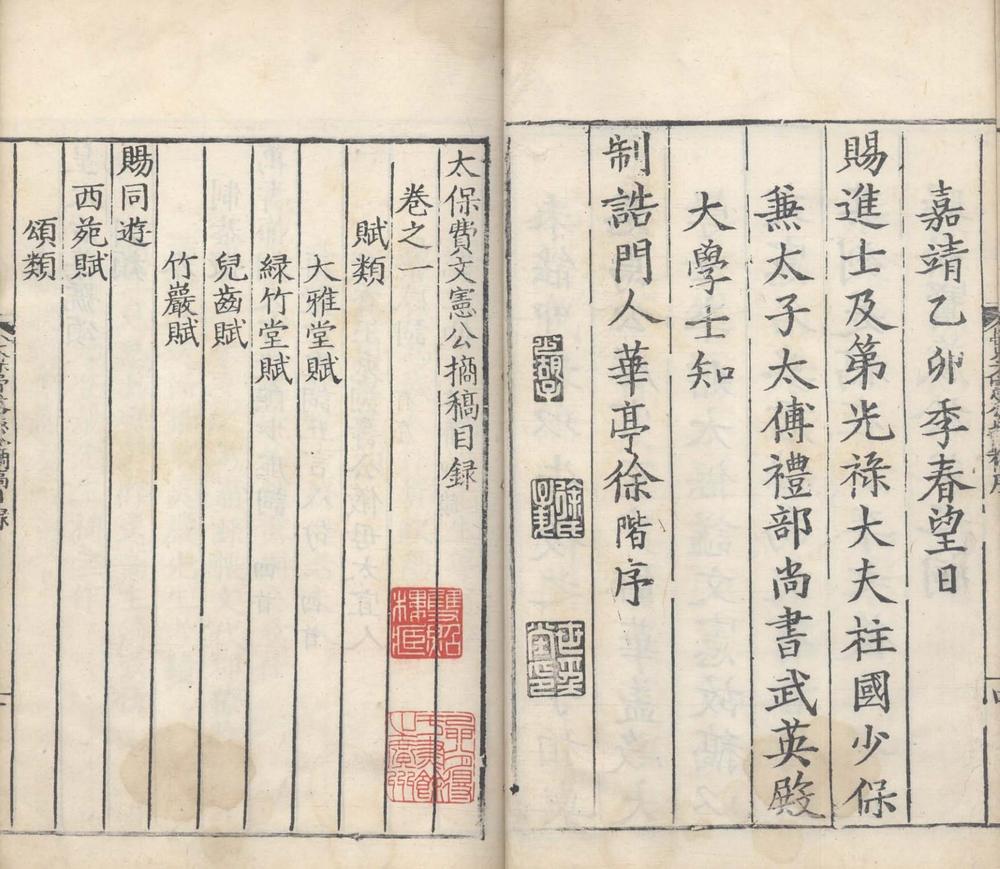 嘉靖乙卯季春望日
賜進士及第光祿大夫柱國少保
兼太子太傅禮部尚書武英殿
大學士知
制誥門人華亭徐階序
太保費文憲公摘稿目録
卷之一
賦類
大雅堂賦
緑竹堂賦
兒齒賦
竹巖賦
賜同遊
西苑賦
頌類